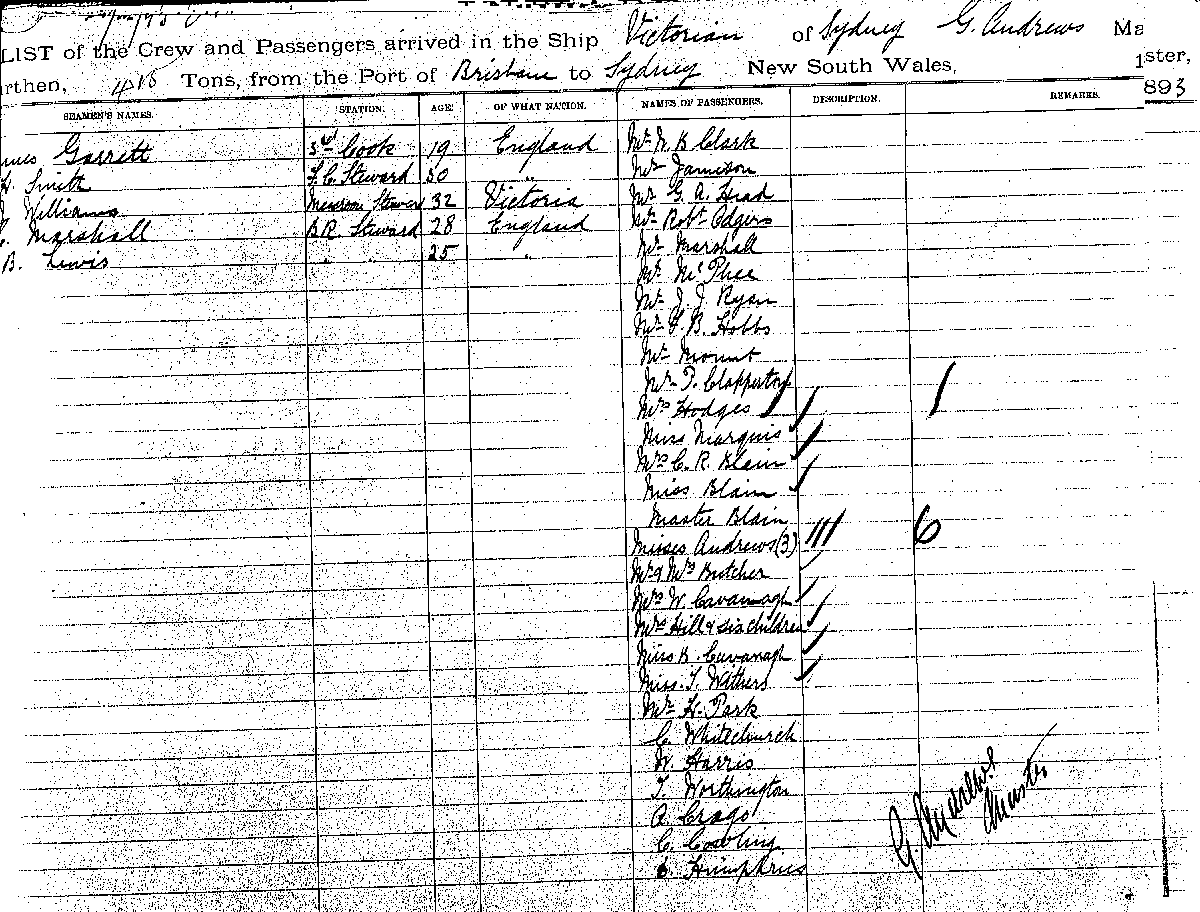 LIST of the Crew and Passengers arrived in the Ship Victorian of Sydney G. Andrews Ma
rthen, Tons, from the Port of Brisbane to Sydney New South Wales, 1ster,
893
SEAMEN'S NAMES. STATION. AGE. OF WHAT NATION. NAMES OF PASSENGERS. DESCRIPTION. REMARKS.
ames Garrett 3rd Cook 19 England Mr N B Clark
H Smith F. C. Steward 30 " Mr Jamieson
Williams Messroom Steward 32 Victoria Mr G. A. Head
Marshall B.R. Steward 28 England Mr Robt Odgers
B. Lewis " 25 " Mr Marshall
Mr McPhee
Mr J. J. Ryan
Mr F. B. Hobbs
Mr Mount
Mr T. Clapperton
Mrs Hodges / / /
Miss Marquis /
Mrs C. R. Blain /
Miss Blain /
Master Blain
Misses Andrews (3) /// 6
Mr & Mrs Butcher /
Mrs W. Cavanagh /
Mrs Hill & six children /
Miss B. Cavanagh /
Miss T. Withers /
Mr H. Park
C. Whitechurch
W. Harris
T. Worthington
A. Crago
C. Cowling
E. Humphries
G. Andrews
Master